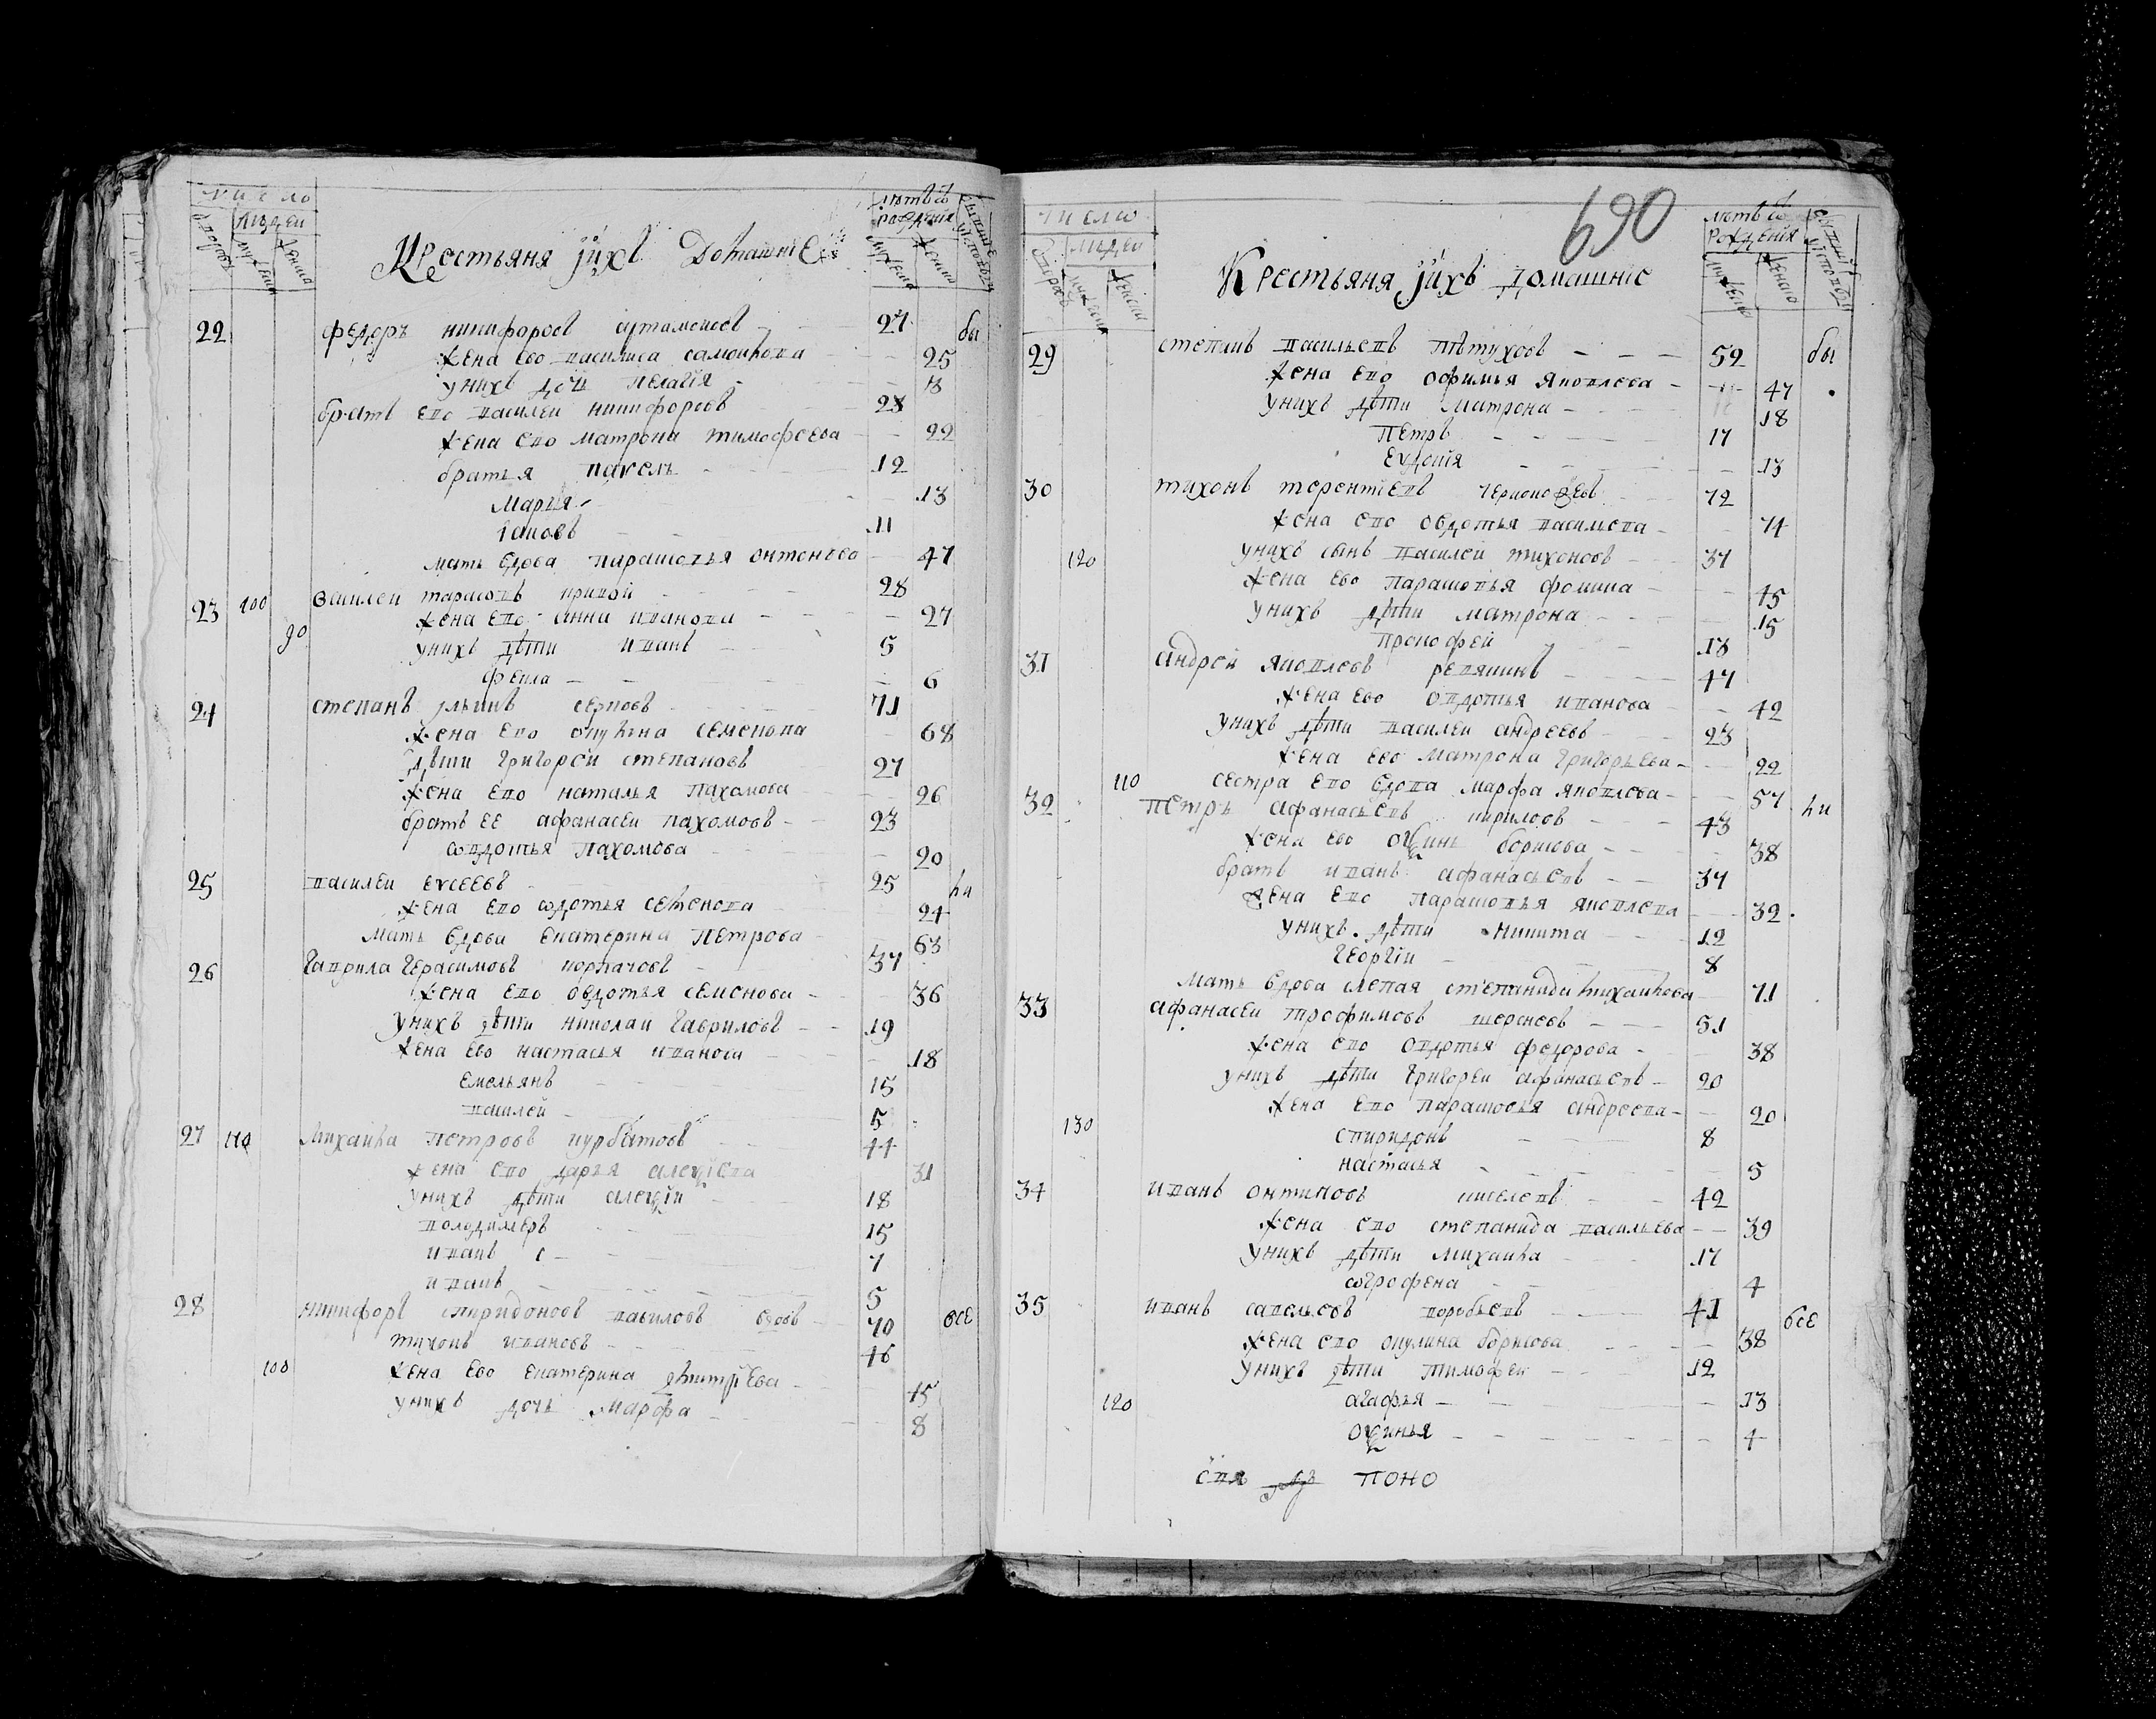 число
людей
Крестьяня ихъ Домашние
лѣтъ ѿ рождения
22 федоръ никифоровъ 27 бы
жена ево василиса самойлова 25
у нихъ дочь пелагия
братъ ево василеи никифоровъ 23
жена ево матрона тимофеева 22
братья павелъ 12
Марья 13
іаковъ 11
мать вдова парасковья онтонева 47
23 100 василеи тарасовъ кривой 28
90 жена ево анна иванова 27
у нихъ дѣти иванъ 5
фекла 6
24 степанъ ильинъ серковъ 71
жена ево окулина семенова 68
дѣти григореи степановъ 27
жена ево наталья пахомова 26
братъ ее афанасеи пахомовъ 23
ѡвдотья пахомова 20
25 василеи евсеевъ 25 ни
жена ево ѡвдотья семенова 24
мать вдова екатерина петрова 63
26 гаврила герасимовъ корпачовъ 37
жена ево овдотья семенова 36
у нихъ дѣти николаи гавриловъ 19
жена ево настасья иванова 18
емельянъ 15
василей 5
27 110 михаила петровъ курбатовъ 44
жена ево дарья алексіева 31
у нихъ дѣти алексіи 18
володимеръ 15
иванъ 7
иванъ 5
28 никифоръ спиридоновъ вавиловъ вдовъ 70 все
тихонъ ивановъ 46
100 жена ево екатерина дмитріева 45
у нихъ дочь марфа 8
690
число
людей
Крестьяня ихъ домашніе
лѣтъ ѿ рождения
29 степанъ васильевъ пѣтуховъ 52 бы
жена ево офимья яковлева 47
у нихъ дѣти матрона 18
петръ 17
евдокія 13
30 тихонъ терентіевъ 72
жена ево овдотья василева 74
120 у нихъ сынъ василей тихоновъ 37
жена ево парасковья фомина 45
у нихъ дѣти матрона 15
прокофей 13
31 андрей яковлевъ репянинъ 47
жена ево овдотья иванова 42
у нихъ дѣти василеи андреевъ 23
жена ево матрона григорьева 22
110 сестра ево вдова марфа яковлева 57
32 петръ афанасьевъ кириловъ 43 ни
жена ево оксинь борисова 38
братъ иванъ афанасьевъ 37
жена ево парасковья яковлева 32
у нихъ дѣти никита 12
георгіи 8
мать вдова слепая степанида михаилова 71
33 афанасеи трофимовъ шерсневъ 51
жена ево овдотья федорова 38
у нихъ дѣти григореи афанасьевъ 20
жена ево парасковья андреева 20
130 спиридонъ 8
настасья 5
34 иванъ онтиповъ киселевъ 42
жена ево степанида васильева 39
у нихъ дѣти михаила 17
ѡгрофена 4
35 иванъ савельевъ воробьевъ 41 все
жена ево окулина борисова 38
у нихъ дѣти тимофеи 12
120 агафья 13
оксинья 4